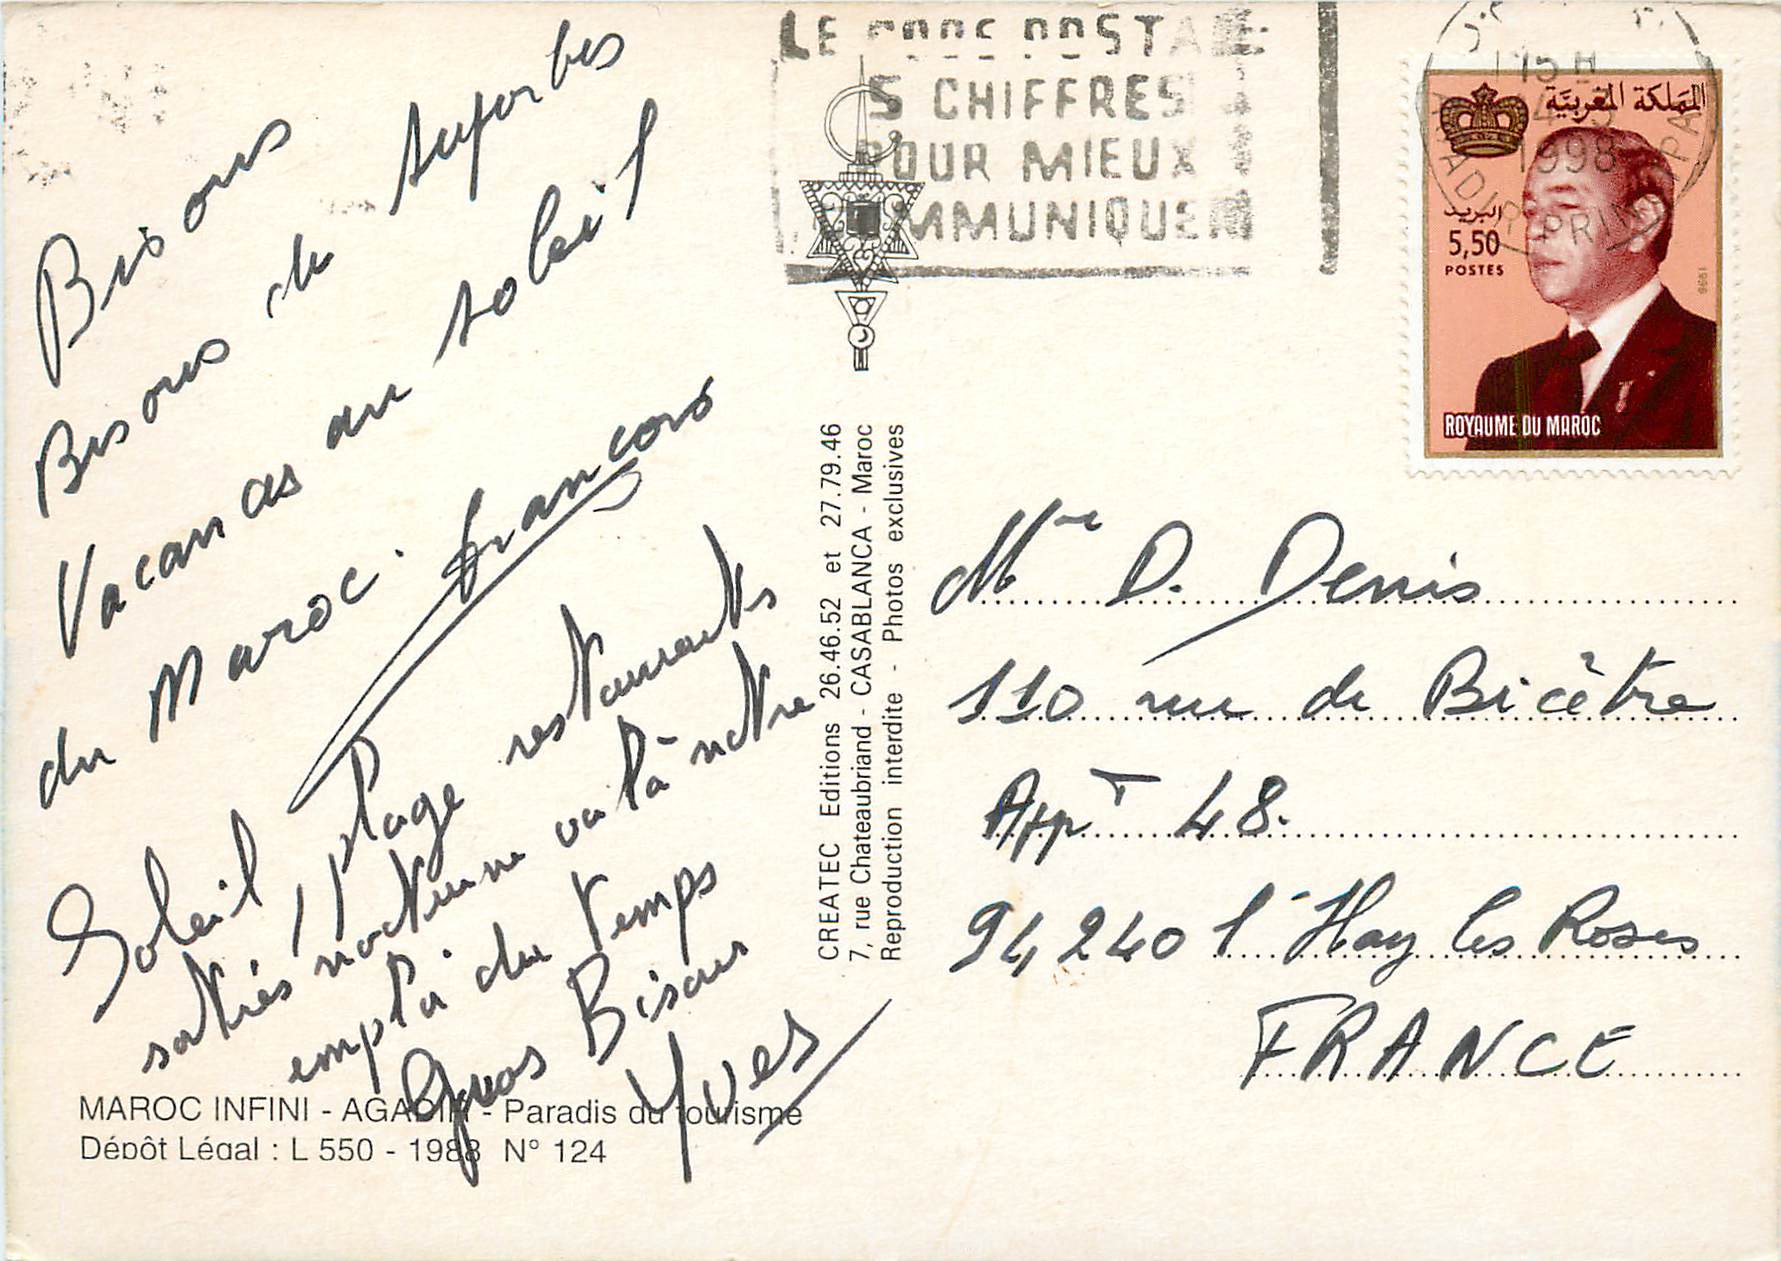 Bisous
Bisous de superbes
Vacances au soleil
du Maroc.
François
Soleil, plage restaurants
sorties nocturne voilà notre
emploi du temps
Gros Bisous
Yves
MAROC INFINI - AGADIR - Paradis du tourisme
Dépôt Légal : L 550 - 1988 N° 124
LE CODE POSTAL
5 CHIFFRES
POUR MIEUX
COMMUNIQUER
CREATEC Editions 26.46.52 et 27.79.46
7, rue Chateaubriand - CASABLANCA - Maroc
Reproduction interdite - Photos exclusives
15 H
1998
AGADIR PRINCIPAL
المملكة المغربية
البريد
5,50
POSTES
1996
ROYAUME DU MAROC
Mr D. Denis
110 rue de Bicêtre
Appt 48.
94240 l'Hay les Roses
FRANCE